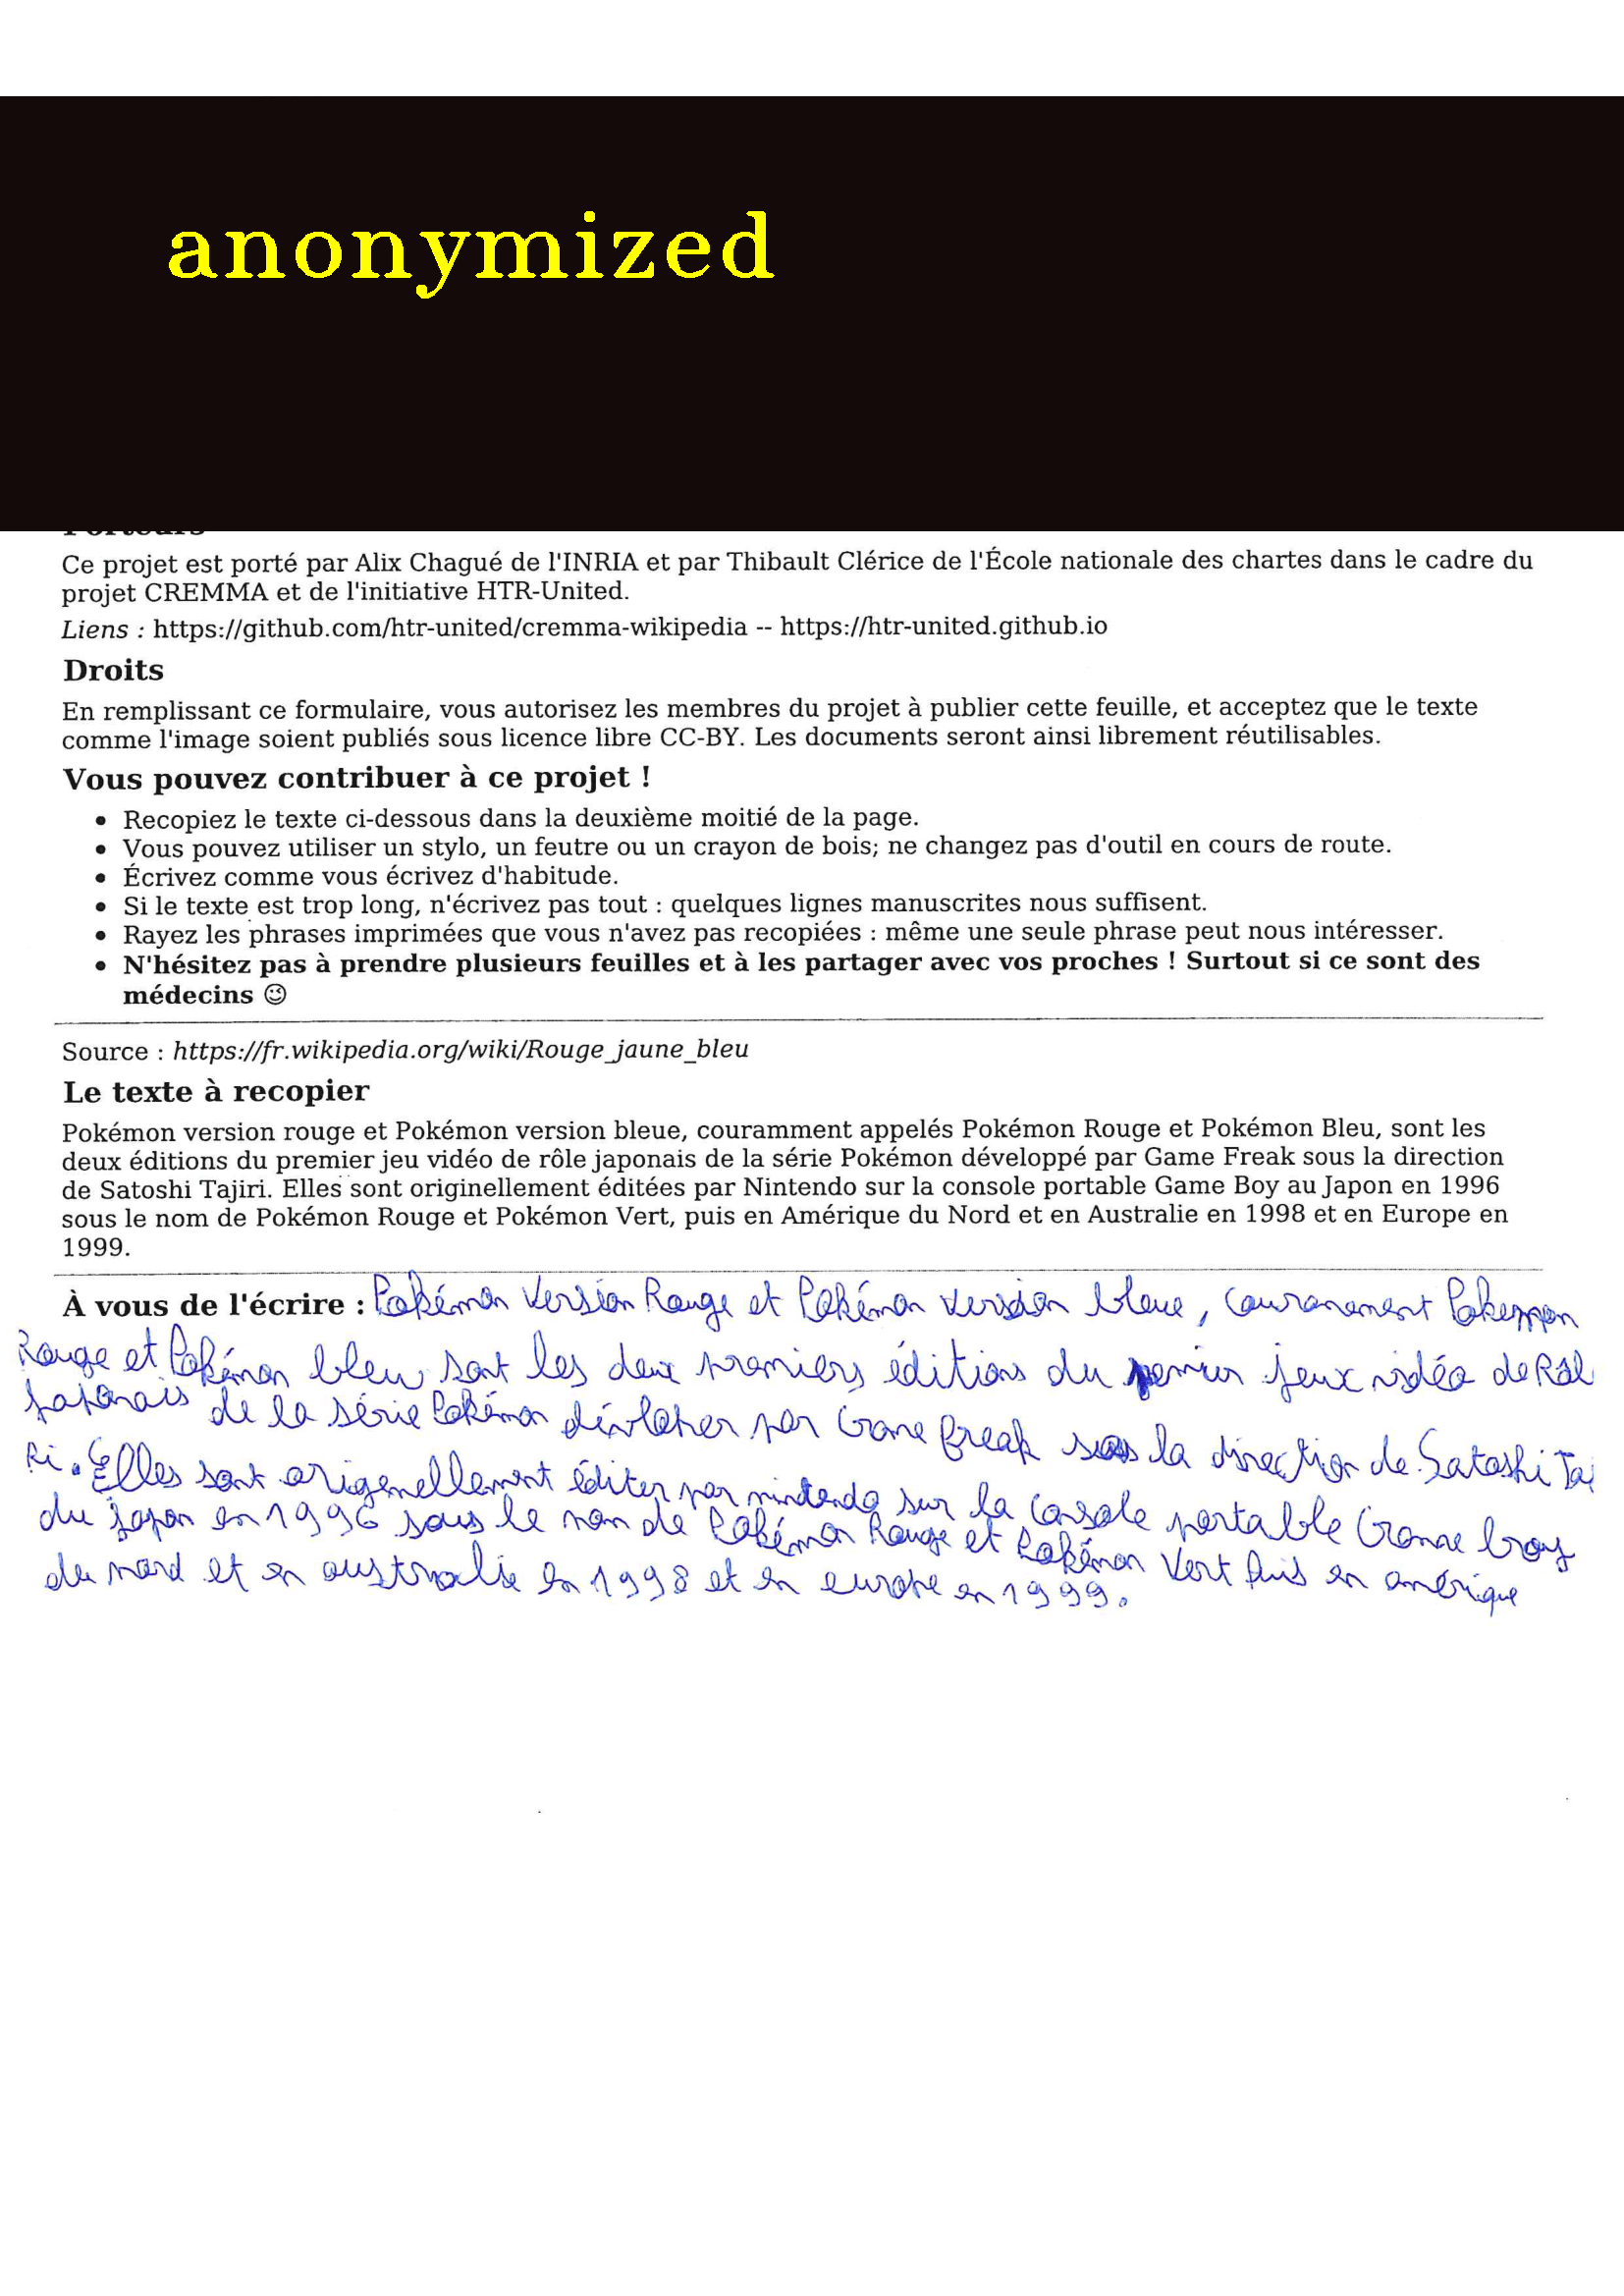 anonymized
Porteurs
Ce projet est porté par Alix Chagué de l'INRIA et par Thibault Clérice de l'École nationale des chartes dans le cadre du
projet CREMMA et de l'initiative HTR-United.
Liens : https://github.com/htr-united/cremma-wikipedia -- https://htr-united.github.io
Droits
En remplissant ce formulaire, vous autorisez les membres du projet à publier cette feuille, et acceptez que le texte
comme l'image soient publiés sous licence libre CC-BY. Les documents seront ainsi librement réutilisables.
Vous pouvez contribuer à ce projet !
• Recopiez le texte ci-dessous dans la deuxième moitié de la page.
• Vous pouvez utiliser un stylo, un feutre ou un crayon de bois; ne changez pas d'outil en cours de route.
• Écrivez comme vous écrivez d'habitude.
• Si le texte est trop long, n'écrivez pas tout : quelques lignes manuscrites nous suffisent.
• Rayez les phrases imprimées que vous n'avez pas recopiées : même une seule phrase peut nous intéresser.
• N'hésitez pas à prendre plusieurs feuilles et à les partager avec vos proches ! Surtout si ce sont des
médecins 😉
Source : https://fr.wikipedia.org/wiki/Rouge_jaune_bleu
Le texte à recopier
Pokémon version rouge et Pokémon version bleue, couramment appelés Pokémon Rouge et Pokémon Bleu, sont les
deux éditions du premier jeu vidéo de rôle japonais de la série Pokémon développé par Game Freak sous la direction
de Satoshi Tajiri. Elles sont originellement éditées par Nintendo sur la console portable Game Boy au Japon en 1996
sous le nom de Pokémon Rouge et Pokémon Vert, puis en Amérique du Nord et en Australie en 1998 et en Europe en
1999.
À vous de l'écrire : Pokémon Version Rouge et Pokémon version bleue, couranement Pokemon
Rouge et Pokémon bleu sont les deux premiers éditions du jeux vidéo de Rôl
Japonais de la série Pokémon dévloper par Game freak sous la direction de Satoshi Taj
Ri. Elles sont origenellement éditer par nintendo sur la console portable Game boy
du japon en 1996 sous le nom de Pokémon Rouge et Pokémon Vert puis en amérique
du nord et en australie en 1998 et en europe en 1999.